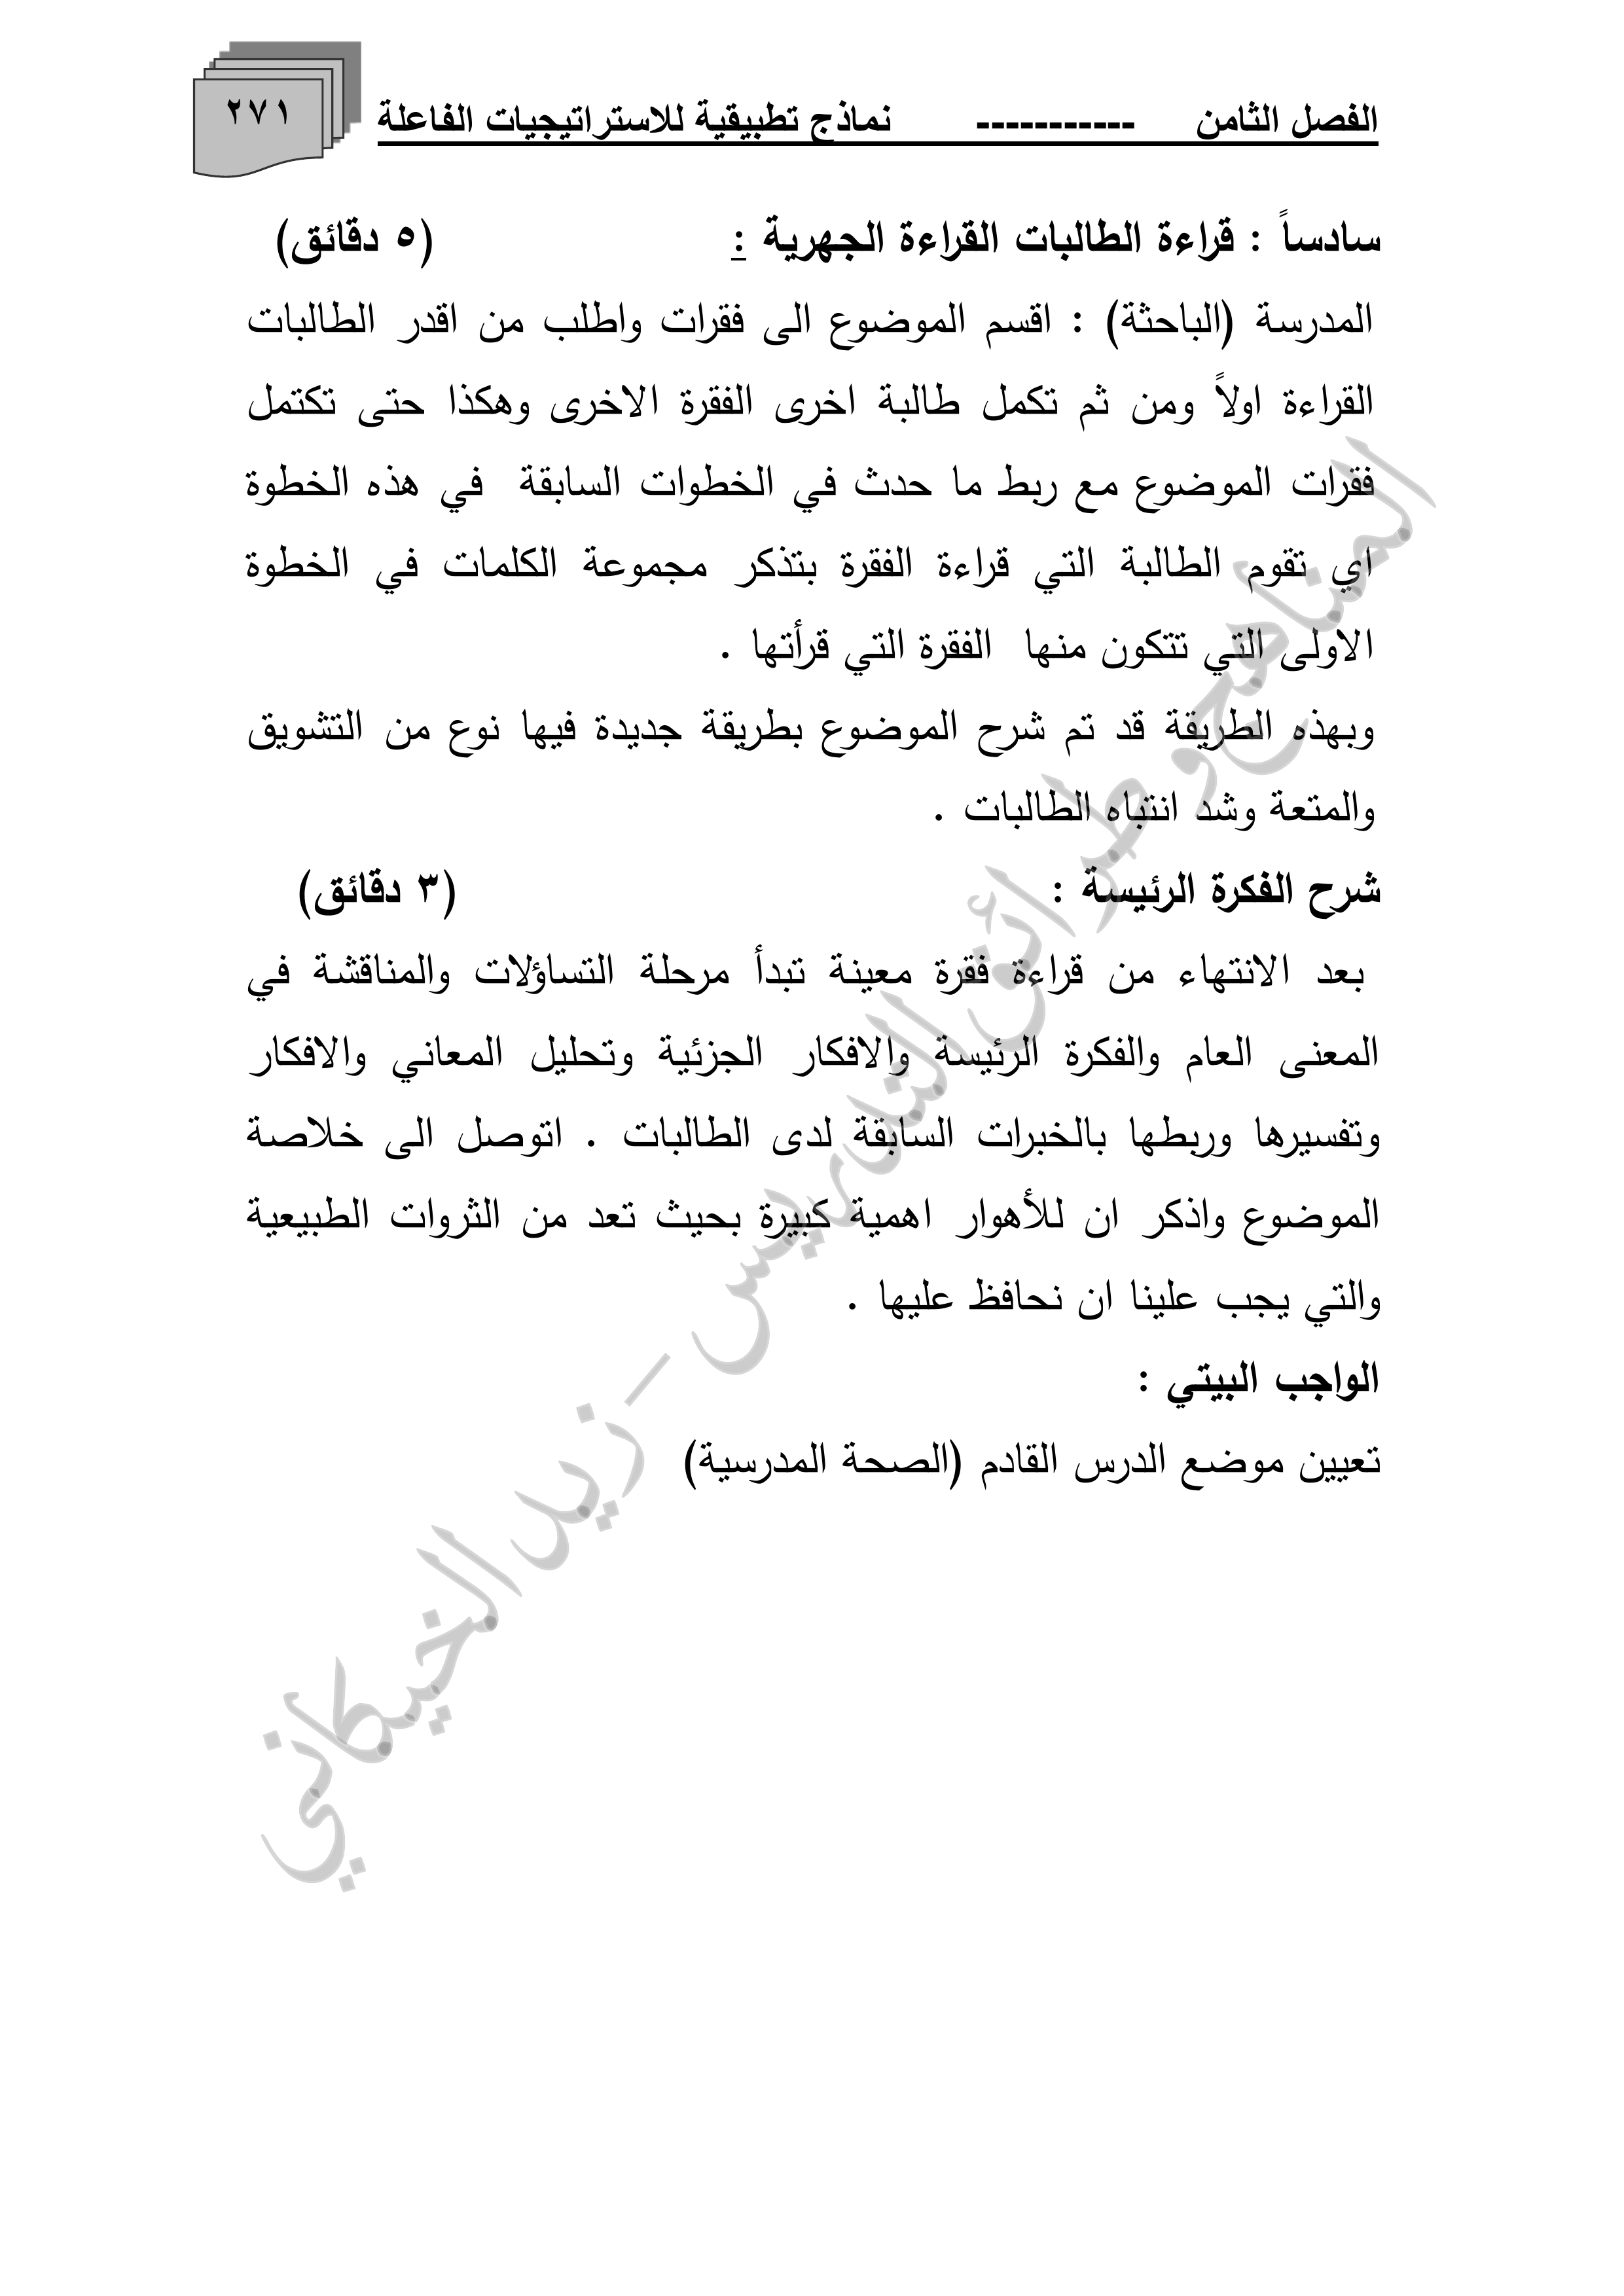 الفصل الثامن ----------- نماذج تطبيقية للاستراتيجيات الفاعلة ٢٧١
سادساً : قراءة الطالبات القراءة الجهرية : (٥ دقائق)
المدرسة (الباحثة) : اقسم الموضوع الى فقرات واطلب من اقدر الطالبات
القراءة اولاً ومن ثم تكمل طالبة اخرى الفقرة الاخرى وهكذا حتى تكتمل
فقرات الموضوع مع ربط ما حدث في الخطوات السابقة في هذه الخطوة
اي تقوم الطالبة التي قراءة الفقرة بتذكر مجموعة الكلمات في الخطوة
الاولى التي تتكون منها الفقرة التي قرأتها .
وبهذه الطريقة قد تم شرح الموضوع بطريقة جديدة فيها نوع من التشويق
والمتعة وشد انتباه الطالبات .
شرح الفكرة الرئيسة : (٣ دقائق)
بعد الانتهاء من قراءة فقرة معينة تبدأ مرحلة التساؤلات والمناقشة في
المعنى العام والفكرة الرئيسة والافكار الجزئية وتحليل المعاني والافكار
وتفسيرها وربطها بالخبرات السابقة لدى الطالبات . اتوصل الى خلاصة
الموضوع واذكر ان للأهوار اهمية كبيرة بحيث تعد من الثروات الطبيعية
والتي يجب علينا ان نحافظ عليها .
الواجب البيتي :
تعيين موضع الدرس القادم (الصحة المدرسية)
المناهج وطرائق التدريس - زيد الخيكاني